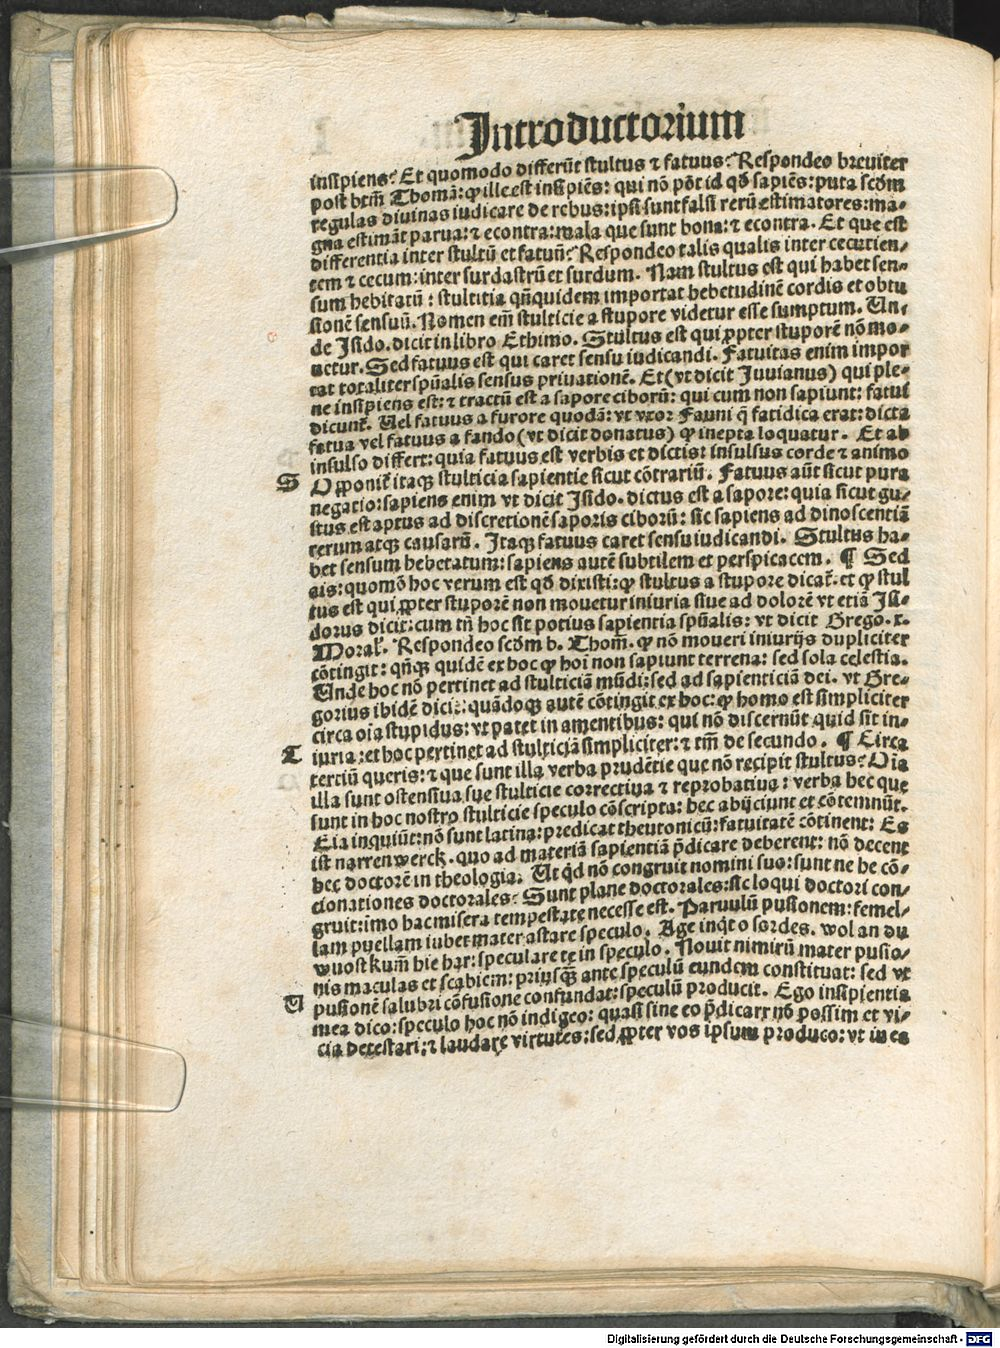 Introductorium
insipiens? Et quomodo differūt stultus ⁊ fatuus? Respondeo breuiter
post btm̄ Thomā: ꝙ ille est insipiēs: qui nō pōt id qd̄ sapiēs: puta scdm̄
regulas diuinas iudicare de rebus: ipsi sunt falsi rerū estimatores: ma⸗
gna estimāt parua: ⁊ econtra: mala que sunt bona: ⁊ econtra. Et que est
differentia inter stultū et fatuū? Respondeo talis qualis inter cecutien⸗
tem ⁊ cecum: inter surdastrū et surdum. Nam stultus est qui habet sen⸗
sum hebitatū: stultitia qn̄quidem importat hebetudinē cordis et obtu
sionē sensuū. Nomen em̄ stulticie a stupore videtur esse sumptum. Un⸗
de Isido. dicit in libro Ethimo. Stultus est qui ꝓpter stuporē nō mo⸗
uetur. Sed fatuus est qui caret sensu iudicandi. Fatuitas enim impor
tat totaliter spūalis sensus priuationē. Et (vt dicit Juuianus) qui ple⸗
ne insipiens est: ⁊ tractū est a sapore ciborū: qui cum non sapiunt: fatui
dicunt᷑. Uel fatuus a furore quodā: vt vxor Fauni q̄ fatidica erat: dicta
fatua vel fatuus a fando (vt dicit donatus) ꝙ inepta loquatur. Et ab
insulso differt: quia fatuus est verbis et dictis: insulsus corde ⁊ animo
S Opponit᷑ itaqꝫ stulticia sapientie sicut cōtrariū. Fatuus aūt sicut pura
negatio: sapiens enim vt dicit Isido. dictus est a sapore: quia sicut gu⸗
stus est aptus ad discretionē saporis ciborū: sic sapiens ad dinoscentiā
rerum atqꝫ causarū. Itaqꝫ fatuus caret sensu iudicandi. Stultus ha⸗
bet sensum hebetatum: sapiens autē subtilem et perspicacem. ¶ Sed
ais: quomō hoc verum est qd̄ dixisti: ꝙ stultus a stupore dicat᷑. et ꝙ stul
tus est qui ꝓpter stuporē non mouetur iniuria siue ad dolorē vt etiā Isi⸗
dorus dicit: cum tn̄ hoc sit potius sapientia spūalis: vt dicit Grego. x.
Moral᷑. Respondeo scdm̄ b. Thom̄. ꝙ nō moueri iniurijs dupliciter
cōtingit: qn̄qꝫ quidē ex hoc ꝙ hoī non sapiunt terrena: sed sola celestia.
Unde hoc nō pertinet ad stulticiā mūdi: sed ad sapienticiā dei. vt Gre⸗
gorius ibidē dicit: quādoqꝫ autē cōtingit ex hoc: ꝙ homo est simpliciter
circa oīa stupidus: vt patet in amentibus: qui nō discernūt quid sit in⸗
T iuria: et hoc pertinet ad stulticiā simpliciter: ⁊ tm̄ de secundo. ¶ Circa
tertiū queris: ⁊ que sunt illa verba prudētie que nō recipit stultus? Oīa
illa sunt ostensiua sue stulticie correctiua ⁊ reprobatiua: verba hec que
sunt in hoc nostro stulticie speculo cōscripta: hec abijciunt et cōtemnūt.
Eia inquiūt: nō sunt latina: predicat theutonicū: fatuitatē cōtinent: Es
ist narren werck. quo ad materiā sapientiā p̄dicare deberent: nō decent
hec doctorē in theologia. Ut qd̄ nō congruit nomini suo: sunt ne he cō⸗
cionationes doctorales? Sunt plane doctorales: sic loqui doctori con⸗
gruit: īmo hac misera tempestate necesse est. Paruulū pusionem: femel⸗
lam puellam iubet mater astare speculo. Age inq̇t o sordes. wol an du
wuost kum̄ hie har: speculare te in speculo. Nouit nimirū mater pusio⸗
nis maculas et scabiem: priusqꝫ̄ ante speculū eundem constituat: sed vt
U pusionē salubri cōfusione confundat: speculū producit. Ego insipientia
mea dico: speculo hoc nō indigeo: quasi sine eo p̄dicare nō possim et vi⸗
cia detestari: ⁊ laudare virtutes: sed ꝓpter vos ipsum produco: vt in eo
Digitalisierung gefördert durch die Deutsche Forschungsgemeinschaft - DFG